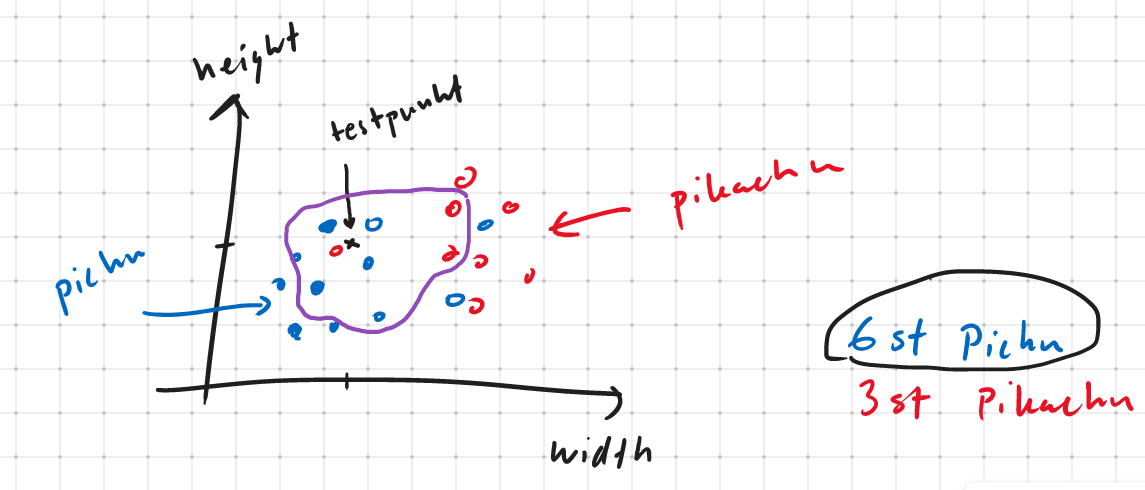 height
testpunkt
pikachu
pichu
6 st Pichu
3 st Pikachu
width